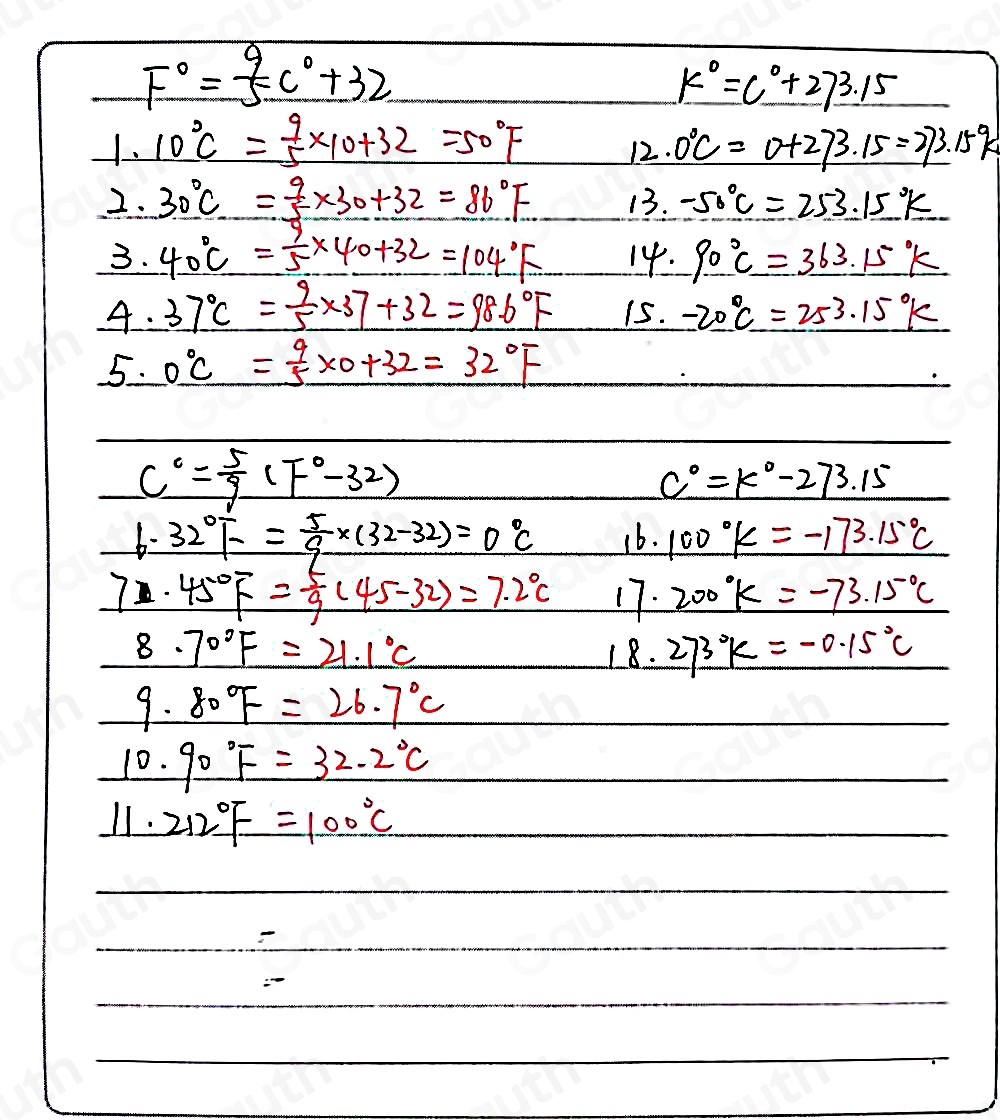 F° = 9/5 C° + 32
1. 10°C = 9/5 × 10 + 32 = 50°F
2. 30°C = 9/5 × 30 + 32 = 86°F
3. 40°C = 9/5 × 40 + 32 = 104°F
4. 37°C = 9/5 × 37 + 32 = 98.6°F
5. 0°C = 9/5 × 0 + 32 = 32°F
K° = C° + 273.15
12. 0°C = 0 + 273.15 = 273.15°K
13. -50°C = 253.15°K
14. 90°C = 363.15°K
15. -20°C = 253.15°K
C° = 5/9 (F° - 32)
6. 32°F = 5/9 × (32 - 32) = 0°C
7. 45°F = 5/9 (45 - 32) = 7.2°C
8. 70°F = 21.1°C
9. 80°F = 26.7°C
10. 90°F = 32.2°C
11. 212°F = 100°C
=
=
C° = K° - 273.15
16. 100°K = -173.15°C
17. 200°K = -73.15°C
18. 273°K = -0.15°C
Gauth